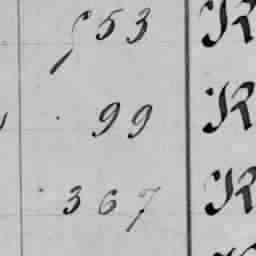 553 R
99 R
367 R